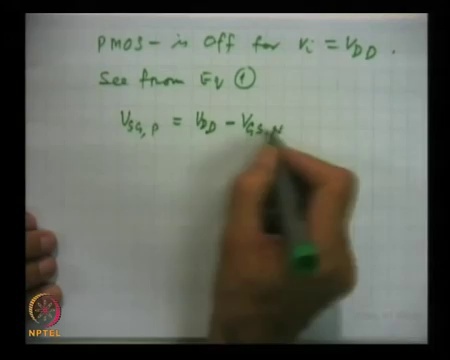 PMOS - is Off for Vi = VDD.
See from EQ ①
VSG,P = VDD - VGS,N
NPTEL